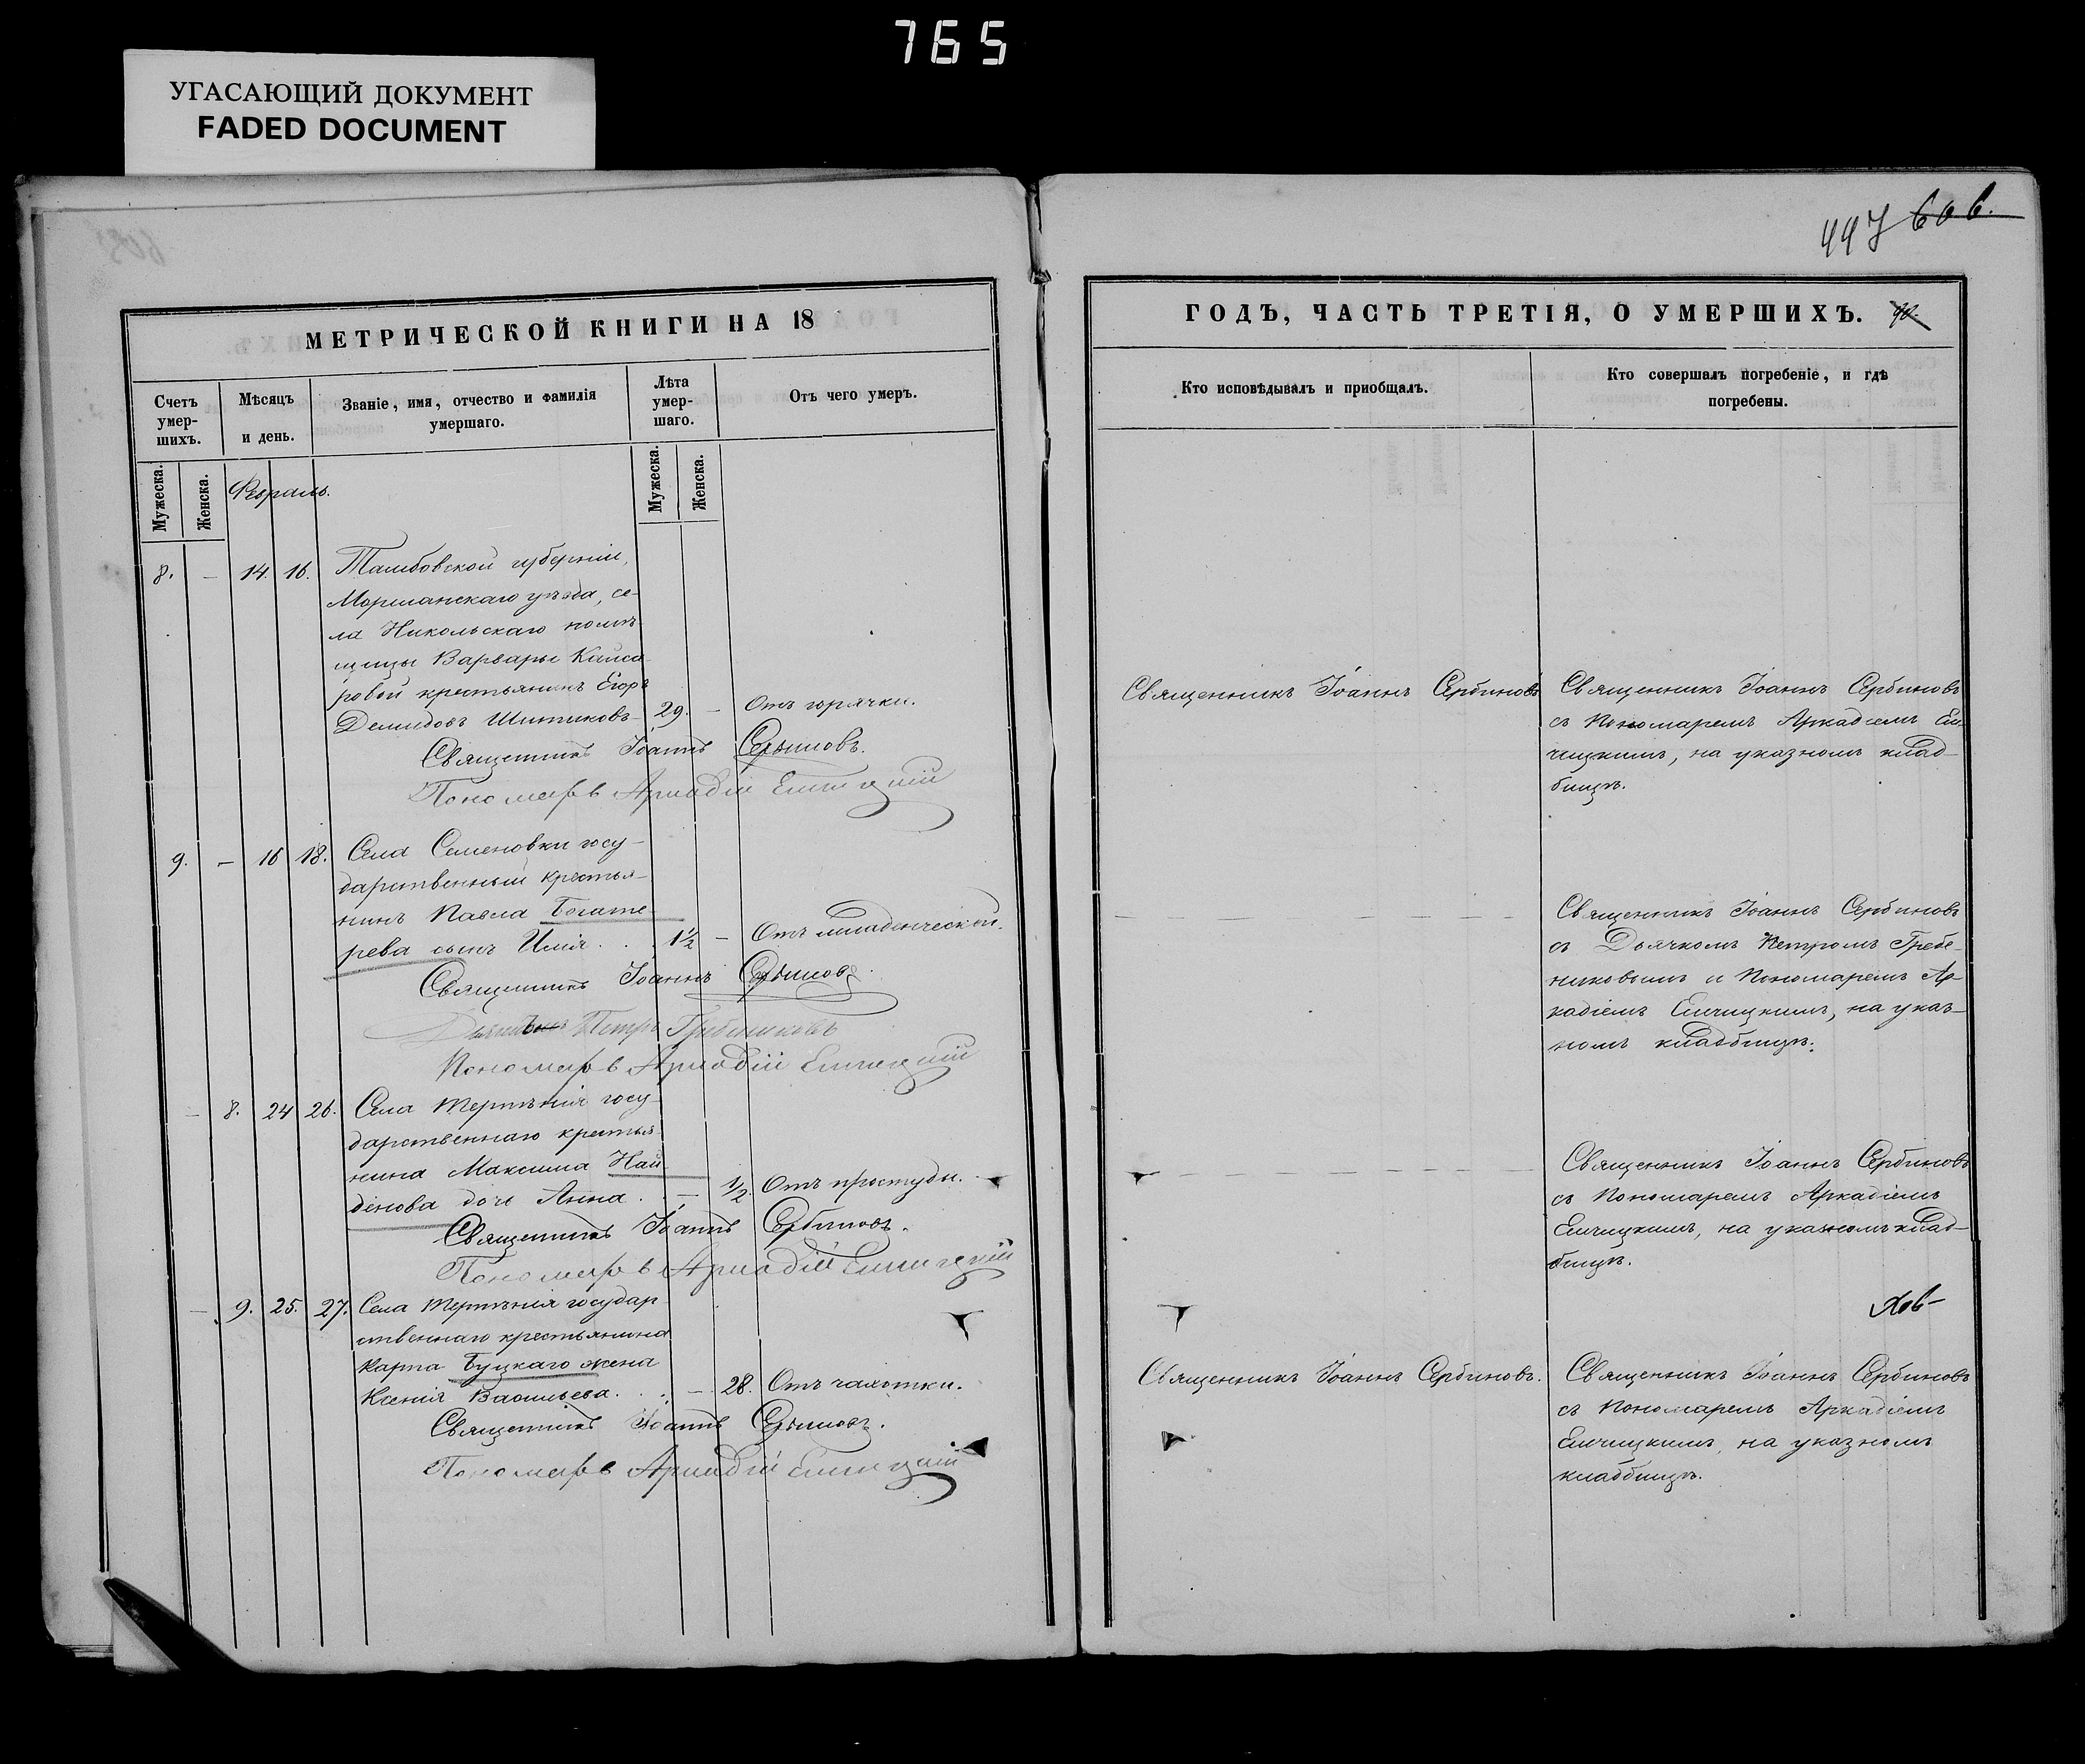 765
УГАСАЮЩИЙ ДОКУМЕНТ
FADED DOCUMENT
447 606.
МЕТРИЧЕСКОЙ КНИГИ НА 18
Счетъ умер-шихъ.
Мѣсяцъ и день.
Званіе, имя, отчество и фамилія умершаго.
Лѣта умер-шаго.
Отъ чего умеръ.
Мужеска.
Женска.
Февраль.
Мужеска.
Женска.
8. — 14. 16. Тамбовской губерніи,
Моршанскаго уѣзда, се-
ла Никольскаго помѣ-
щицы Варвары
ровой крестьянинъ Егоръ
Демидовъ Шитиковъ 29. — Отъ горячки.
Священникъ Іоаннъ Сербиновъ.
Пономарь Аркадій
9. — 16 18. Села Семеновки госу-
дарственный крестья-
нинъ Павла Богате-
рева сынъ Илія. . 1½ — Отъ младенческой.
Священникъ Іоаннъ Сербиновъ.
Петръ Гребениковъ
Пономарь Аркадій
— 8. 24 26. Села Терпѣнія госу-
дарственнаго крестья-
нина Максима Най-
денова дочь Анна. . — ½. Отъ простуды.
Священникъ Іоаннъ Сербиновъ.
Пономарь Аркадій
— 9. 25. 27. Села Терпѣнія государ-
ственнаго крестьянина
Карпа Буцкаго жена
Ксенія Васильева. . . — 28. Отъ чахотки.
Священникъ Іоаннъ Сербиновъ.
Пономарь Аркадій
ГОДЪ, ЧАСТЬ ТРЕТІЯ, О УМЕРШИХЪ.
Кто исповѣдывалъ и приобщалъ.
Кто совершалъ погребеніе, и гдѣ погребены.
Священникъ Іоаннъ Сербиновъ
Священникъ Іоаннъ Сербиновъ
съ Пономаремъ Аркадіемъ Ем-
чицкимъ, на указномъ клад-
бищѣ.
Священникъ Іоаннъ Сербиновъ
съ Дьячкомъ Петромъ Гребе-
никовымъ и Пономаремъ Ар-
кадіемъ Емчицкимъ, на указ-
номъ кладбищѣ.
Священникъ Іоаннъ Сербиновъ
съ Пономаремъ Аркадіемъ
Емчицкимъ, на указномъ клад-
бищѣ.
Священникъ Іоаннъ Сербиновъ.
Священникъ Іоаннъ Сербиновъ
съ Пономаремъ Аркадіемъ
Емчицкимъ, на указномъ
кладбищѣ.